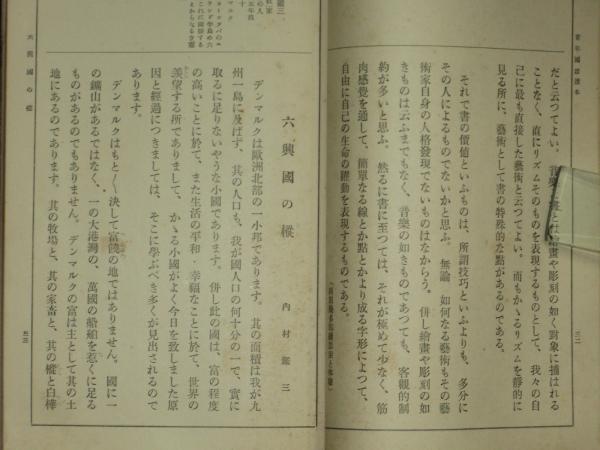 青年國語讀本
三二
だと云つてよい。音樂
繪畫や彫刻の如く對象に捕はれる
ことなく、直にリズムそのものを表現するものとして、我々の自
己に最も直接した藝術と云つてよい。而もかゝるリズムを靜的に
見る所に、藝術として書の特殊的な點があるのである。
それで書の價値といふものは、所謂技巧といふよりも、多分に
その人によるものでないかと思ふ。無論、如何なる藝術もその藝
術家自身の人格發現でないものはなからう。併し繪畫や彫刻の如
きものは云ふまでもなく、音樂の如きものであつても、客觀的制
約が多いと思ふ。然るに書に至つては、それが極めて少なく、筋
肉感覺を通して、簡單なる線とか點とかより成る字形によつて、
自由に自己の生命の躍動を表現するものである。
六 興國の樅
內村鑑三
デンマルクは歐洲北部の一小邦であります。其の面積は我が九
州一島に及ばず、其の人口も、我が國人口の何十分の一で、實に
取るに足りないやうな小國であります。併し此の國は、富の程度
の高いことに於て、また生活の平和・幸福なことに於て、世界の
羨望する所でありまして、かゝる小國がよく今日を致しました原
因と經過につきましては、そこに學ぶべき多くが見出されるので
あります。
デンマルクはもと〳〵決して富饒の地ではありません。國に一
の鑛山があるではなく、一の大港灣の、萬國の船舶を惹くに足る
ものがあるのでもありません。デンマルクの富は主として其の土
地にあるのであります。其の牧場と、其の家畜と、其の樅と白樺
六 興國の樅
三三